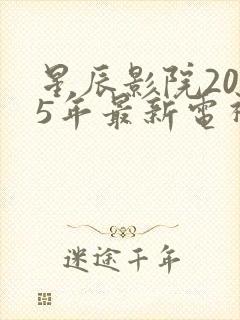 星辰影院20
5年最新电
迷途千年